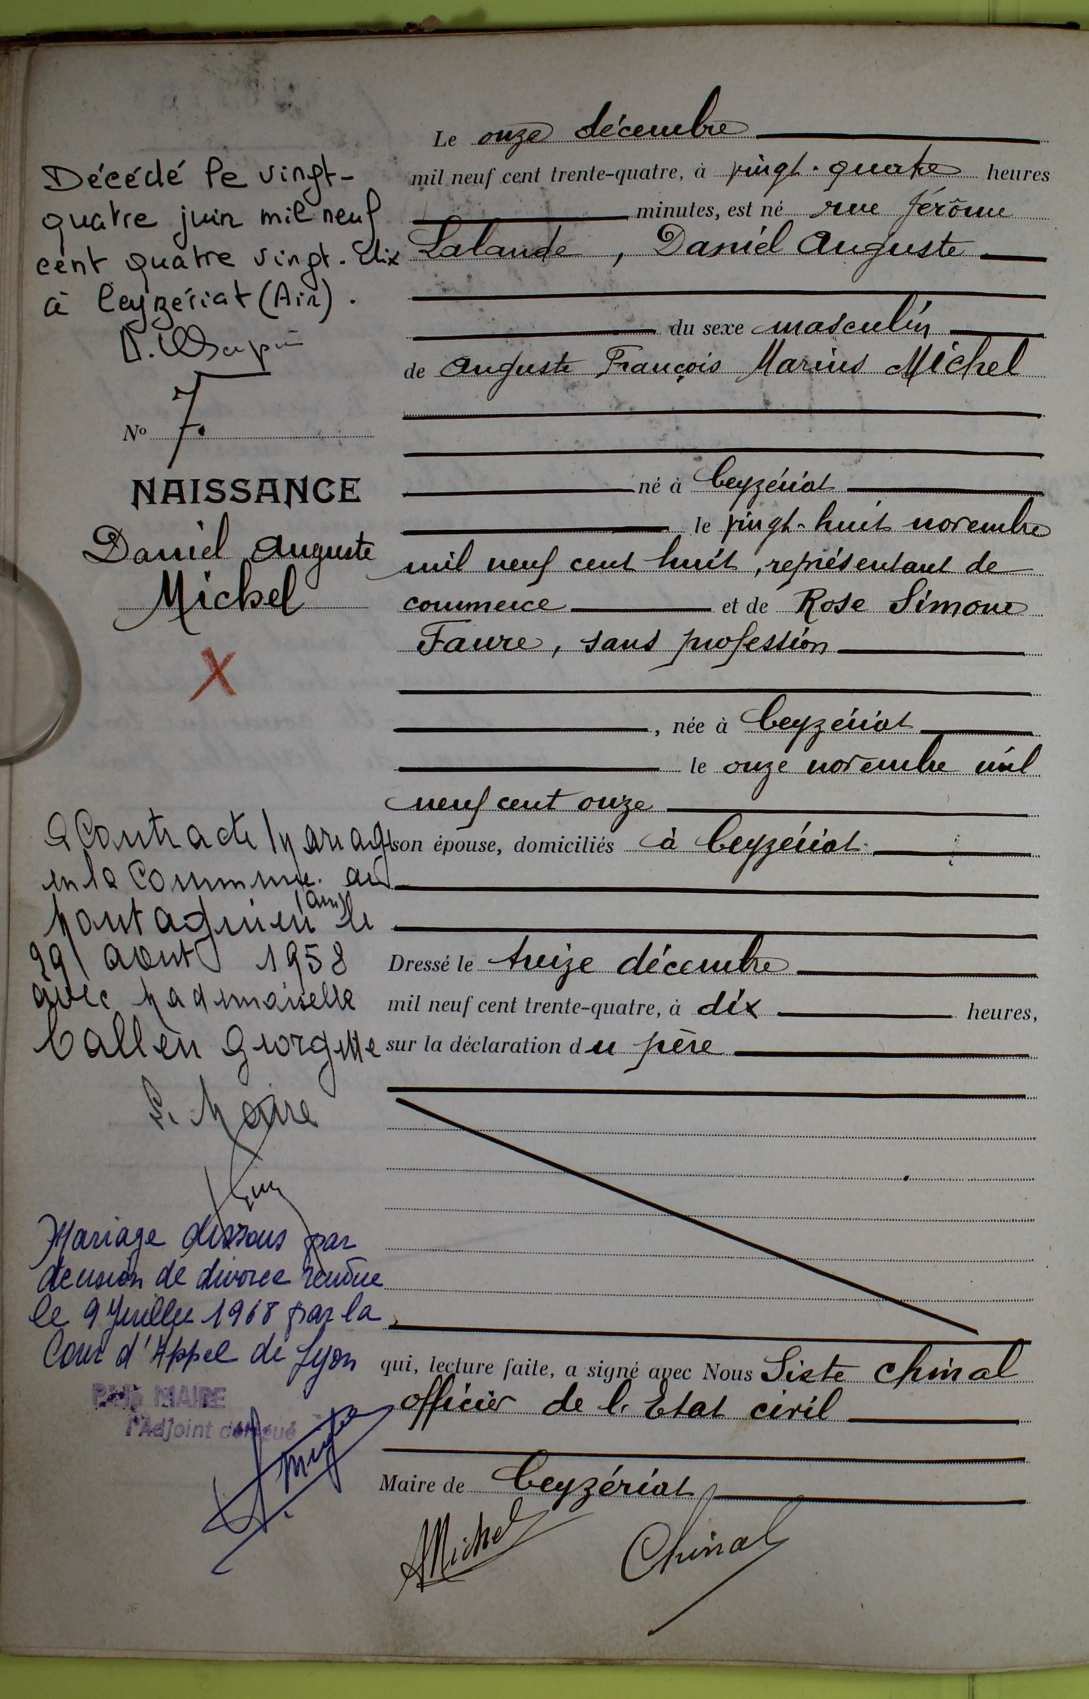 Décédé le vingt-
quatre juin mil neuf
cent quatre vingt-dix
à Ceyzériat (Ain).
Nº 7.
NAISSANCE
Daniel Auguste
Michel
X
a Contracté Mariage
en la Commune de
Montagnieu (Ain) le
29 août 1958
avec Mademoiselle
Callen Georgette
Le Maire
Mariage dissous par
décision de divorce rendue
le 9 Juillet 1968 par la
Cour d'Appel de Lyon
MAIRE
l'Adjoint délégué
Le onze décembre
mil neuf cent trente-quatre, à vingt-quatre heures
minutes, est né rue Jérôme
Lalande, Daniel Auguste
du sexe masculin
de Auguste François Marius Michel
né à Ceyzériat
le vingt-huit novembre
mil neuf cent huit, représentant de
commerce et de Rose Simone
Faure, sans profession
, née à Ceyzériat
le onze novembre mil
neuf cent onze
son épouse, domiciliés à Ceyzériat
Dressé le treize décembre
mil neuf cent trente-quatre, à dix heures,
sur la déclaration du père
qui, lecture faite, a signé avec Nous Siste Chinal
officier de l'Etat civil
Maire de Ceyzériat
AMichel
Chinal